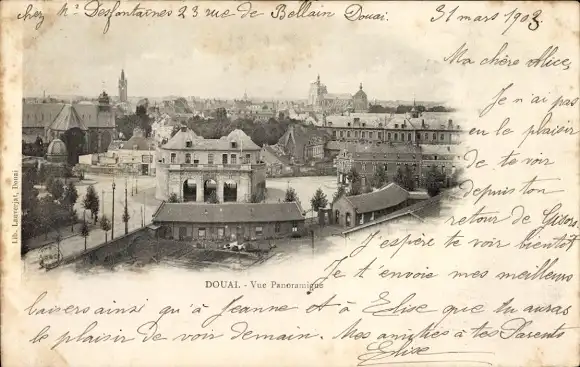 chez Mr Desfontaines 23 rue de Bellain Douai.
31 mars 1903
Ma chère Alice,
Je n'ai pas
eu le plaisir
de te voir
depuis ton
retour de
J'espère te voir bientôt
Je t'envoie mes meilleurs
baisers ainsi qu'à Jeanne et à Elise que tu auras
le plaisir de voir demain. Mes amitiés à tes Parents
Elise
DOUAI. - Vue Panoramique
Lib. Lauverjat, Douai